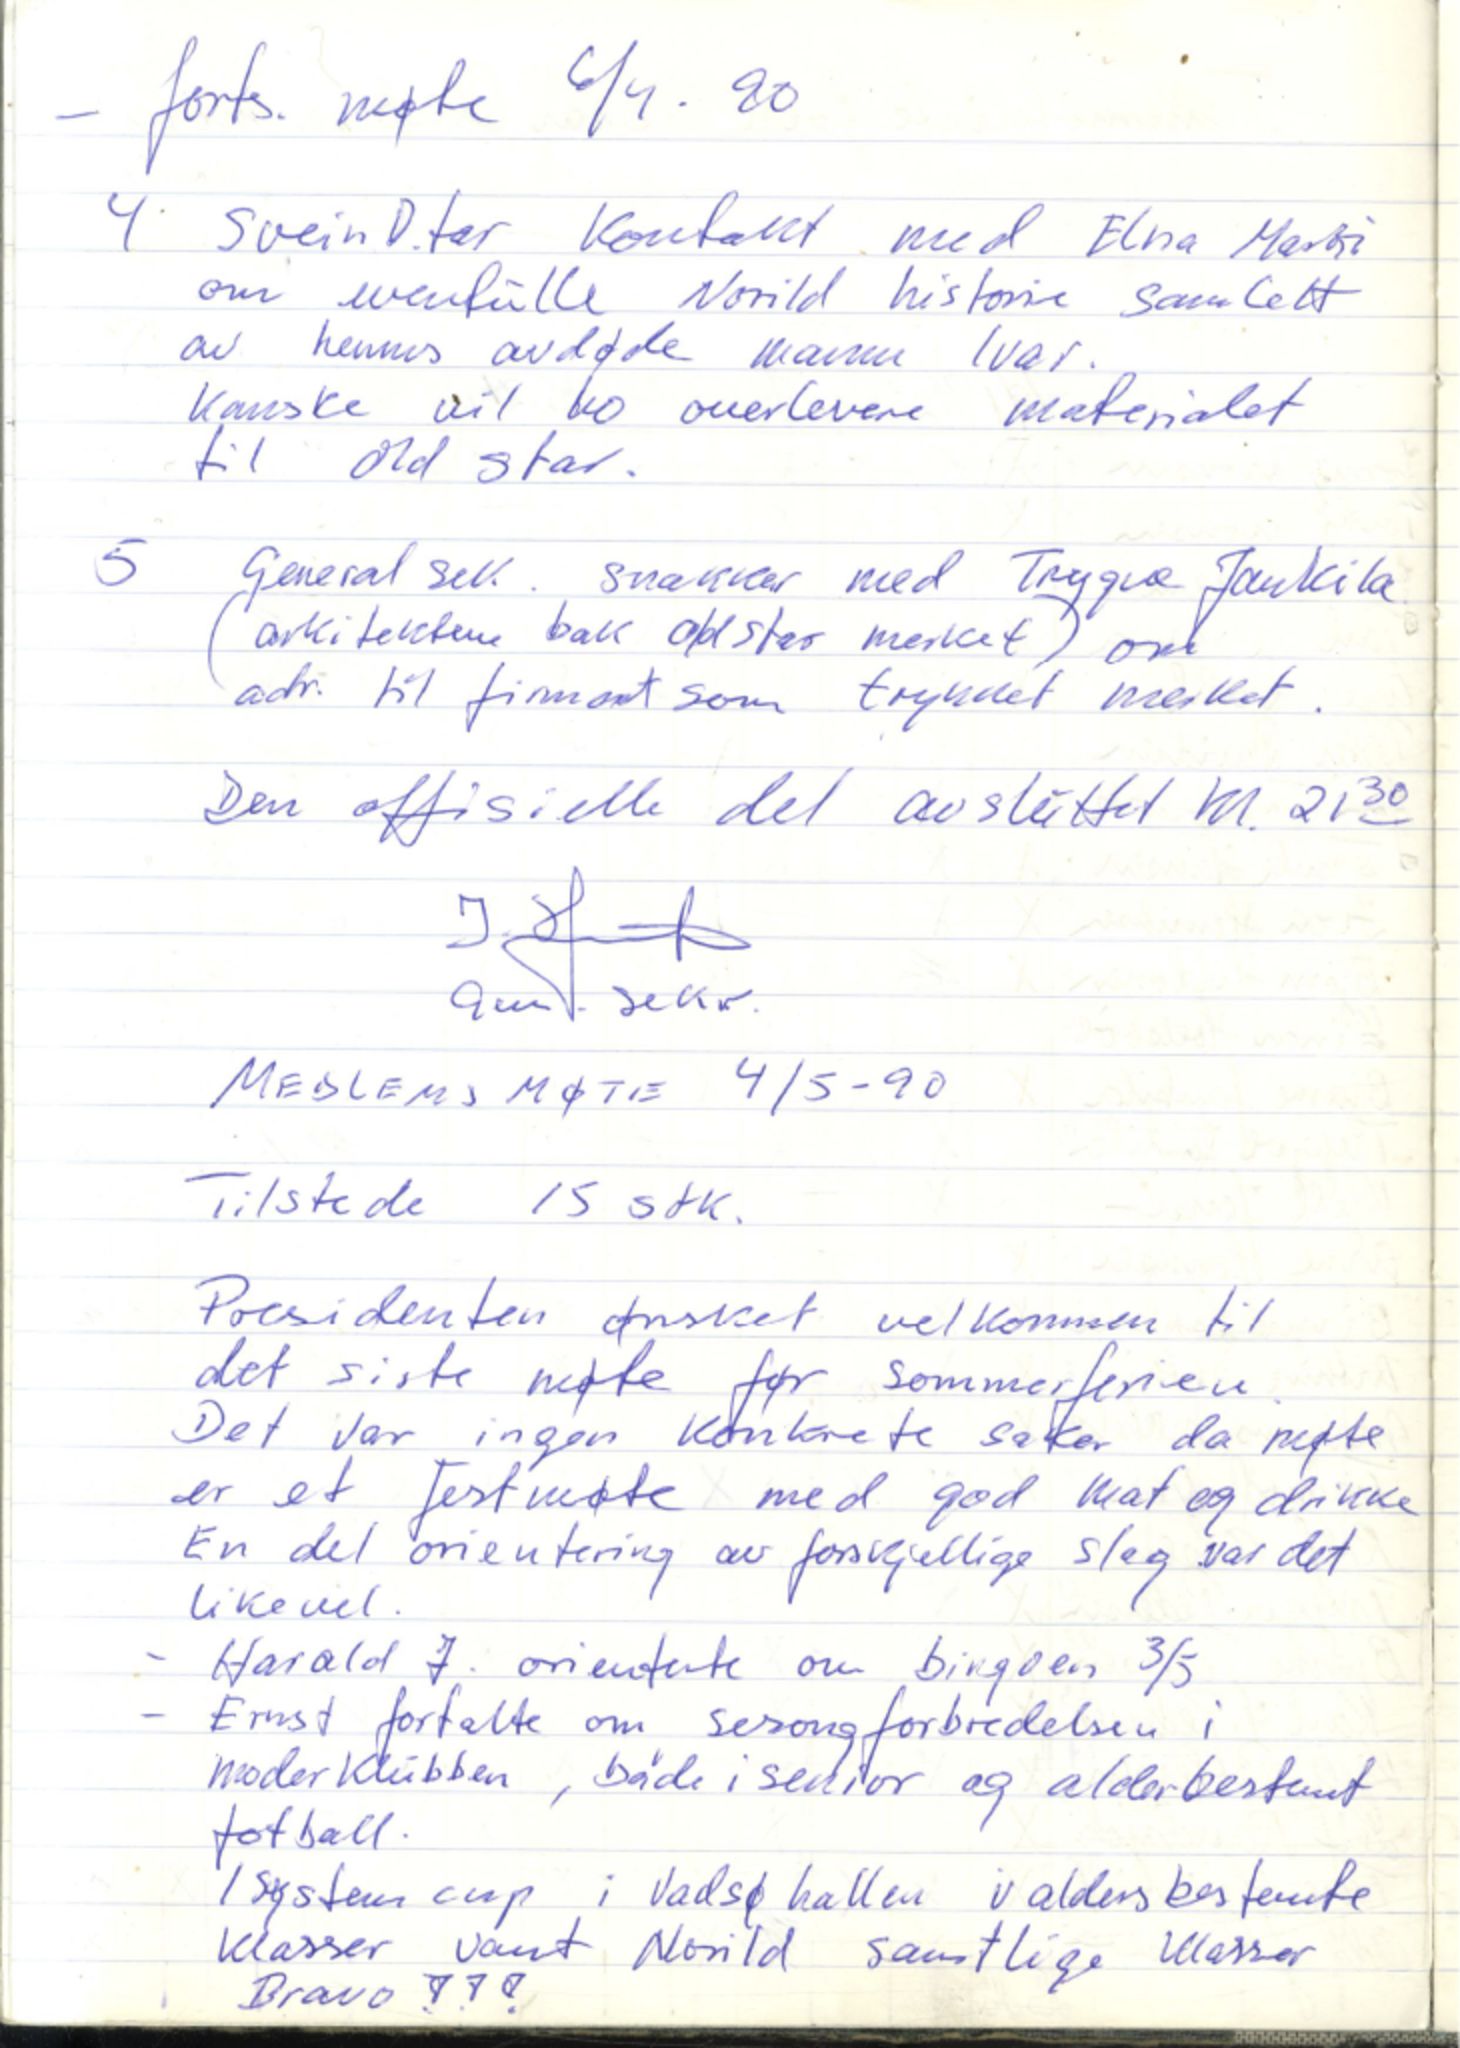 - forts. møte 6/4. 90
4 Svein D. tar kontakt med Elna
om eventuelle Norild historie samlett
av hennes avdøde mann Ivar.
Kanske vil ho overlevere materialet
til Old star.
5 General sek. snakker med Trygve Jankila
(arkitektene bak oldstar merket) om
adr. til firmaet som trykket merket.
Den offisielle del avsluttet kl. 21 30
J.
Gen. sekr.
MEDLEMSMØTE 4/5-90
Tilstede 15 stk.
Presidenten ønsket velkommen til
det siste møte før sommerferien.
Det var ingen konkrete saker da møte
er et festmøte med god mat og drikke
En del orientering av forskjellige slag var det
likevel.
- Harald J. orienterte om bingoen 3/5
- Ernst fortalte om sesongforbredelsen i
moderklubben, både i senior og alderbestemt
fotball.
I system cup i Vadsøhallen i aldersbestemte
klasser vant Norild samtlige klasser
Bravo !!!